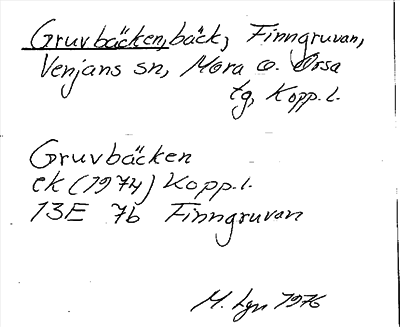 Gruvbäcken, bäck, Finngruvan,
Venjans sn, Mora o. Orsa
tg, Kopp. l.
Gruvbäcken
ek (1974) Kopp. l.
13E 7b Finngruvan
M. Lgn 1976